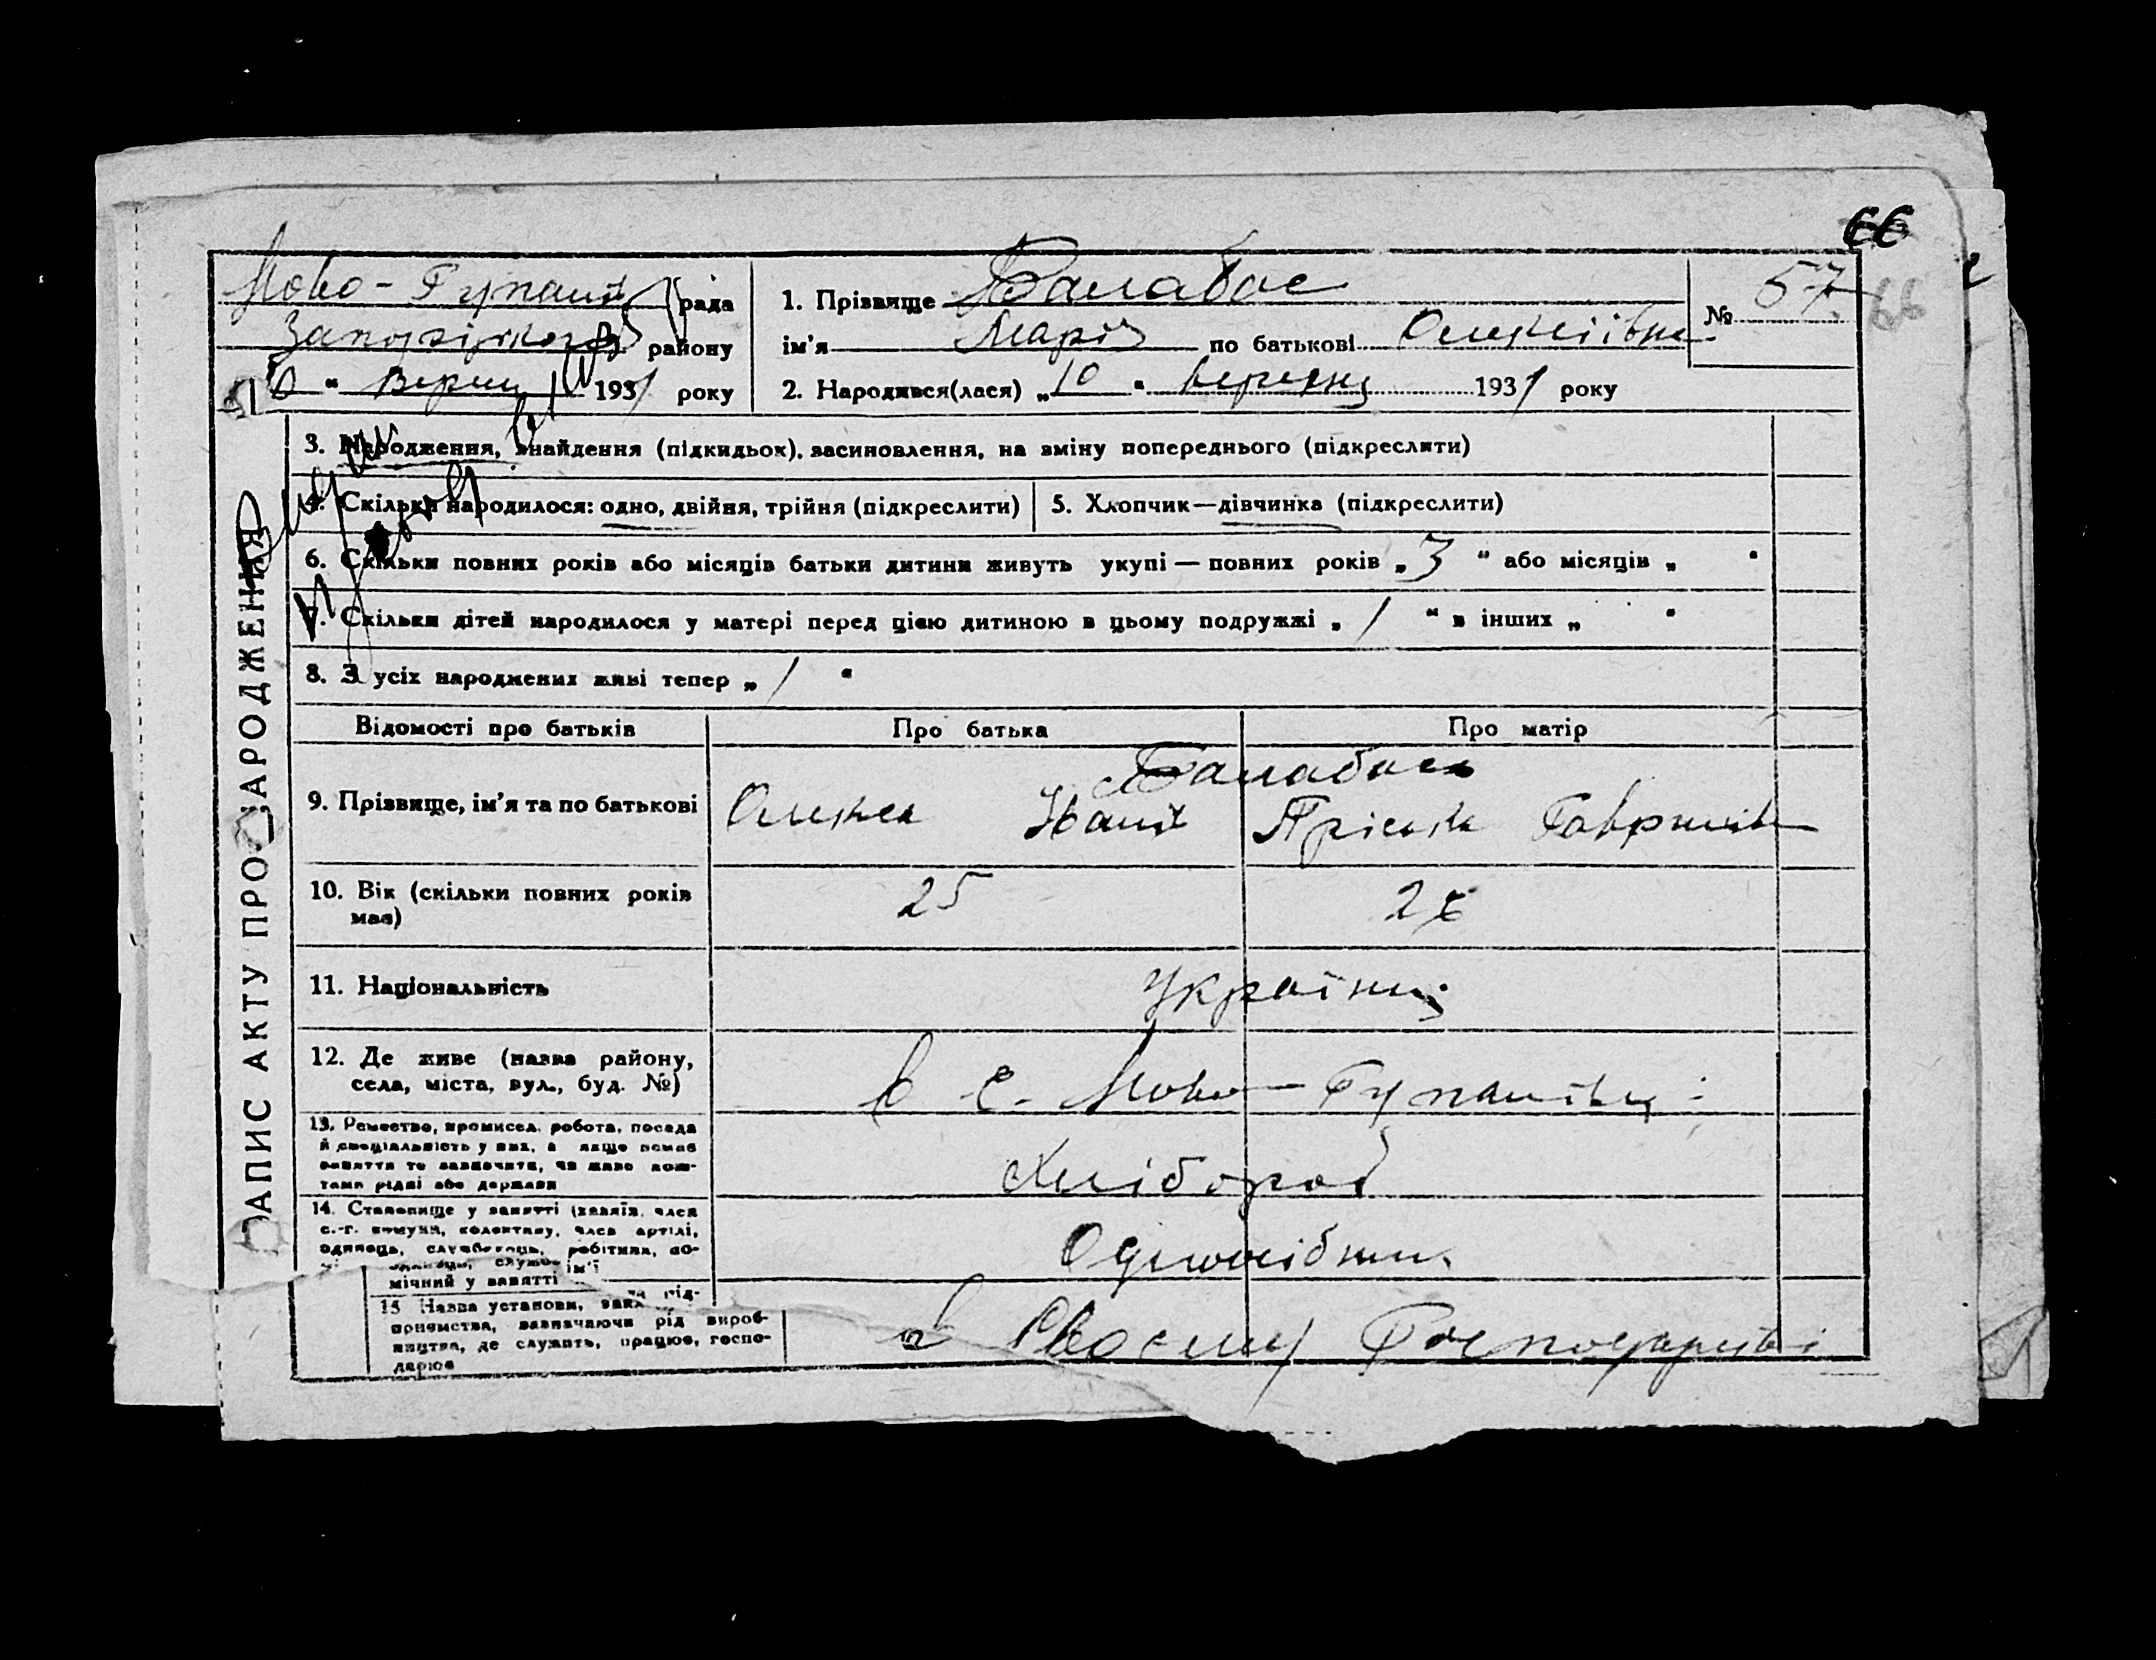 66
Ново-Гупалів рада
Запорізького району
10 " Вересн 1931 року
1. Прізвище Балабас
ім'я Марія по батькові Олексіївна
№ 57
66
2. Народився(лася) „10 " вересня 1931 року
ЗАПИС АКТУ ПРО НАРОДЖЕННЯ
3. Народження, знайдення (підкидьок), засиновлення, на зміну попереднього (підкреслити)
4. Скільки народилося: одно, двійня, трійня (підкреслити)
5. Хлопчик—дівчинка (підкреслити)
6. Скільки повних років або місяців батьки дитини живуть укупі — повних років „ 3 " або місяців „ "
7. Скільки дітей народилося у матері перед цією дитиною в цьому подружжі „ 1 " в інших „ "
8. З усіх народжених живі тепер „ 1 "
Відомості про батьків
Про батька
Про матір
9. Прізвище, ім'я та по батькові
Балабаси
Олекса Іван
Пріська Гаврилів
10. Вік (скільки повних років
має)
25
2
11. Національність
Українці
12. Де живе (назва району,
села, міста, вул., буд. №)
в с. Ново-Гупалівці
13. Ремество, промисел, робота, посада
й спеціальність у них, а якщо немає
заняття то зазначити, чи живе кош-
тами рідні або держави
Хлібороб
14. Становище у занятті (хазяїн, член
с.-г. комуни, колективу, член артілі,
одинець, службовець, робітник, до-
мічний у занятті
Одноосібник
15 Назва установи,
приємства, зазначаючи рід вироб-
ництва, де служить, працює, госпо-
дарює
в своєму господарстві